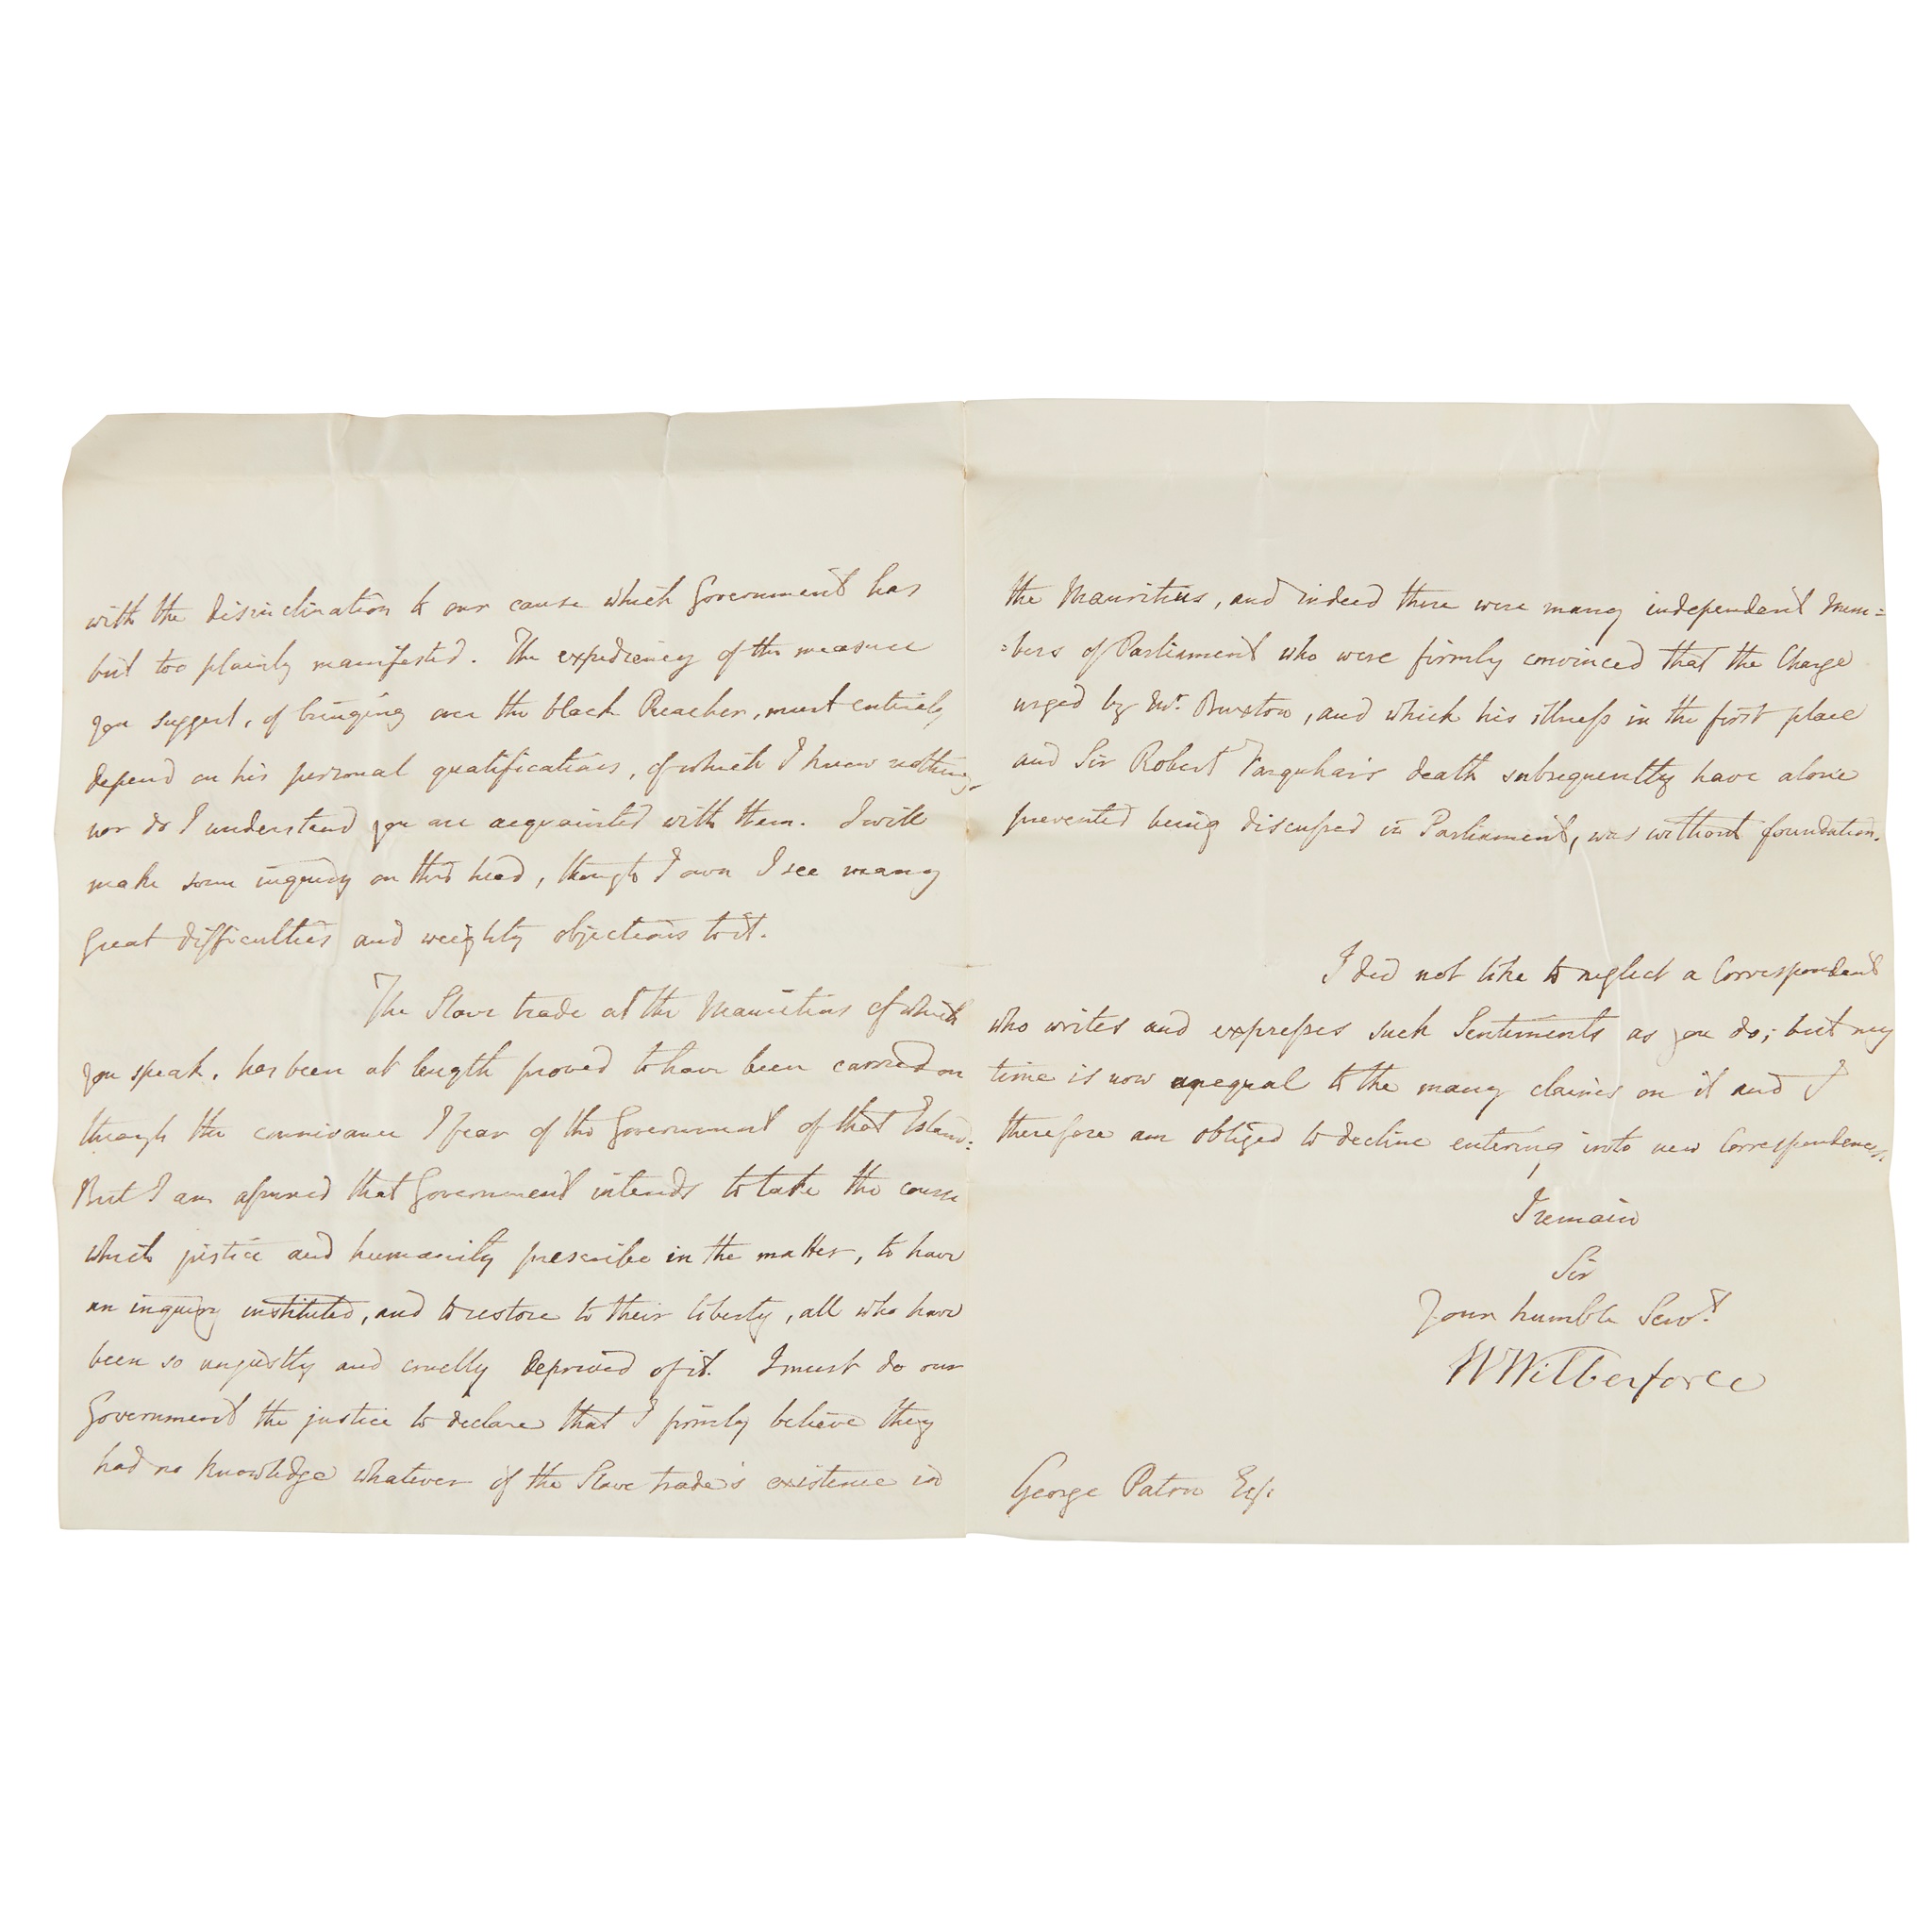 with the disinclination to our cause which Government has
but too plainly manifested. The expediency of the measure
you suggest, of bringing over the black Preacher, must entirely
depend on his personal qualifications, of which I know nothing,
nor do I understand you are acquainted with them. I will
make some inquiry on this head, though I own I see many
great difficulties and weighty objections to it.
The Slave trade at the Mauritius of which
you speak, has been at length proved to have been carried on
through the connivance I fear of the Government of that Island:
But I am assured that Government intends to take the course
which justice and humanity prescribe in the matter, to have
an inquiry instituted, and to restore to their liberty, all who have
been so unjustly and cruelly deprived of it. I must do our
Government the justice to declare that I firmly believe they
had no knowledge whatever of the Slave trade's existence in
the Mauritius, and indeed there were many independent Mem=
=bers of Parliament who were firmly convinced that the Charge
urged by Mr. Buxton, and which his illness in the first place
and Sir Robert Farquhar's death subsequently have alone
prevented being discussed in Parliament, was without foundation.
I did not like to neglect a Correspondent
who writes and expresses such Sentiments as you do; but my
time is now unequal to the many claims on it and I
therefore am obliged to decline entering into new Correspondences.
I remain
Sir
Your humble Servt.
W Wilberforce
George Paton Esq: